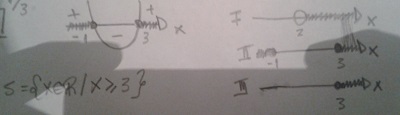 1/3
+ +
-1 - 3 x
I 2 x
II -1 3 x
III 3 x
S={x∈R/x≥3}